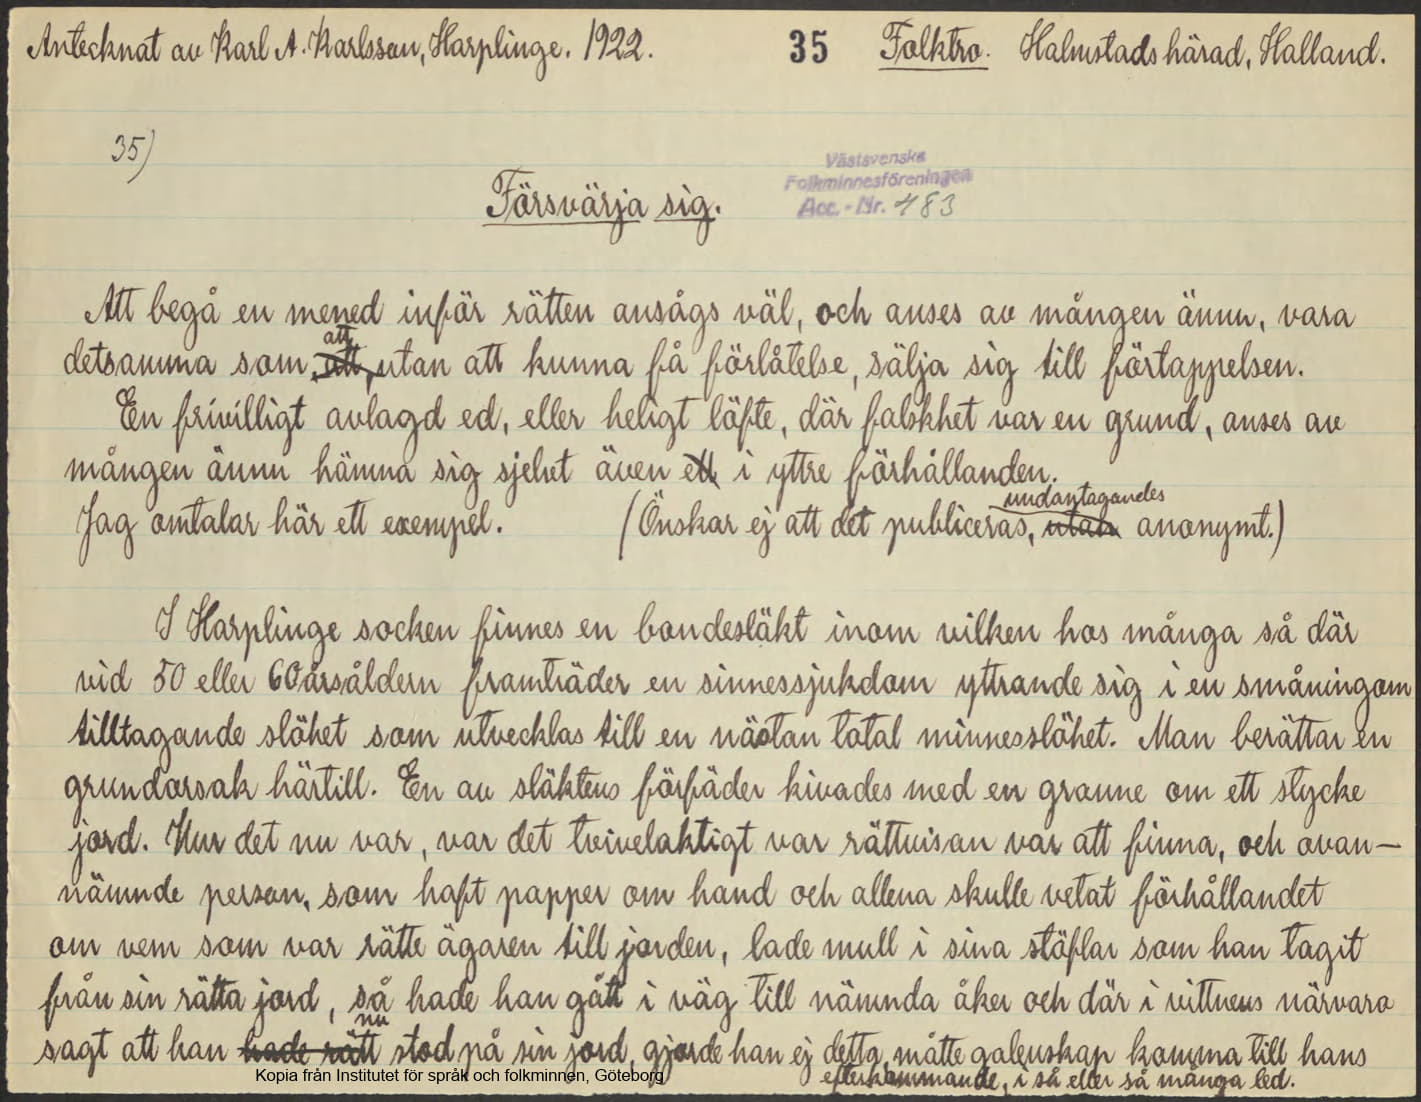 Antecknat av Karl A. Karlsson, Harplinge. 1922. 35 Folktro. Halmstads härad, Halland.
35)
Västsvenska
Folkminnesföreningen
Acc. - Nr. 483
Försvärja sig.
Att begå en mened inför rätten ansågs väl, och anses av mången ännu, vara
att
detsamma som, att, utan att kunna få förlåtelse, sälja sig till förtappelsen.
En frivilligt avlagd ed, eller heligt löfte, där falskhet var en grund, anses av
mången ännu hämna sig sjelvt även ett i yttre förhållanden.
undantagandes
Jag omtalar här ett exempel. (Önskar ej att det publiceras, utan anonymt.)
I Harplinge socken finnes en bondesläkt inom vilken hos många så där
vid 50 eller 60 årsåldern framträder en sinnessjukdom yttrande sig i en småningom
tilltagande slöhet som utvecklas till en nästan total minnesslöhet. Man berättar en
grundorsak härtill. En av släktens förfäder kivades med en granne om ett stycke
jord. Hur det nu var, var det tvivelaktigt var rättvisan var att finna, och ovan-
nämnde person, som haft papper om hand och allena skulle vetat förhållandet
om vem som var rätte ägaren till jorden, lade mull i sina stöflar som han tagit
från sin rätta jord, så hade han gått i väg till nämnda åker och där i vittnens närvaro
nu
sagt att han hade rätt stod på sin jord, gjorde han ej detta, måtte galenskap komma till hans
efterkommande, i så eller så många led.
Kopia från Institutet för språk och folkminnen, Göteborg